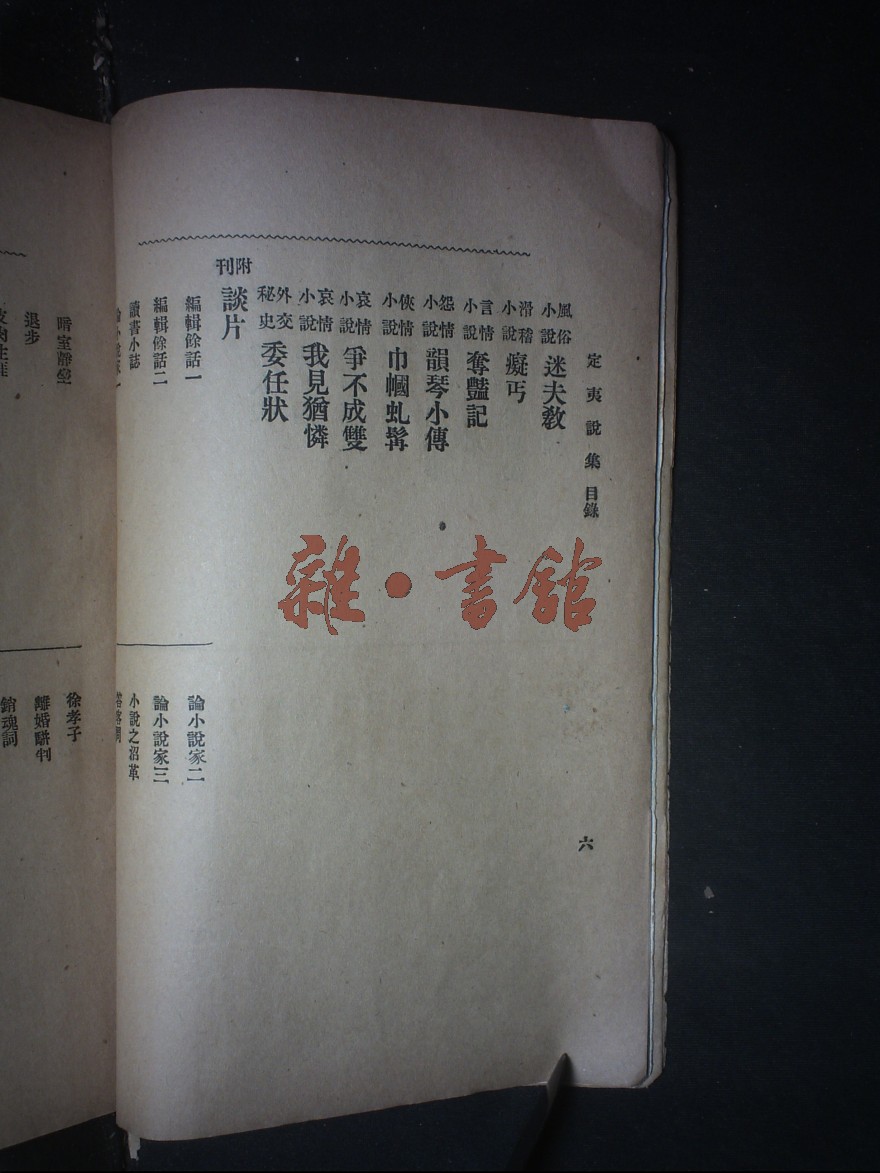 定夷說集 目錄
六
風俗小說 迷夫教
滑稽小說 癡丐
言情小說 奪豔記
怨情小說 韻琴小傳
俠情小說 巾幗虬髯
哀情小說 爭不成雙
哀情小說 我見猶憐
外交秘史 委任狀
附刊 談片
編輯餘話一
論小說家二
編輯餘話二
論小說家三
讀書小誌
小說之沿革
論小說家一
暗室靜坐
徐孝子
退步
離婚駢判
銷魂詞
雜·書館